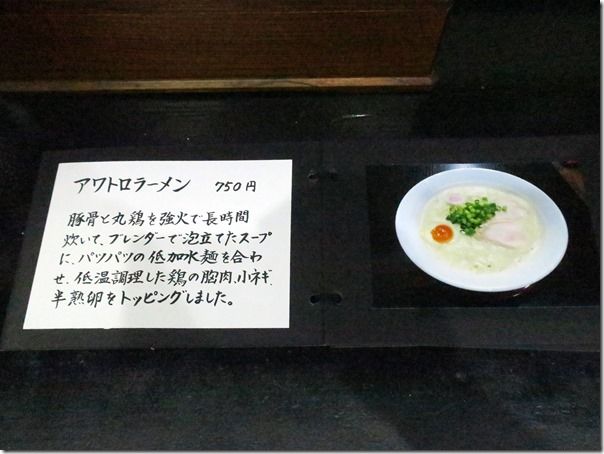 アワトロラーメン 750円
豚骨と丸鶏を強火で長時間
炊いて、ブレンダーで泡立てたスープ
に、パツパツの低加水麺を合わ
せ、低温調理した鶏の胸肉、小ネギ、
半熟卵をトッピングしました。